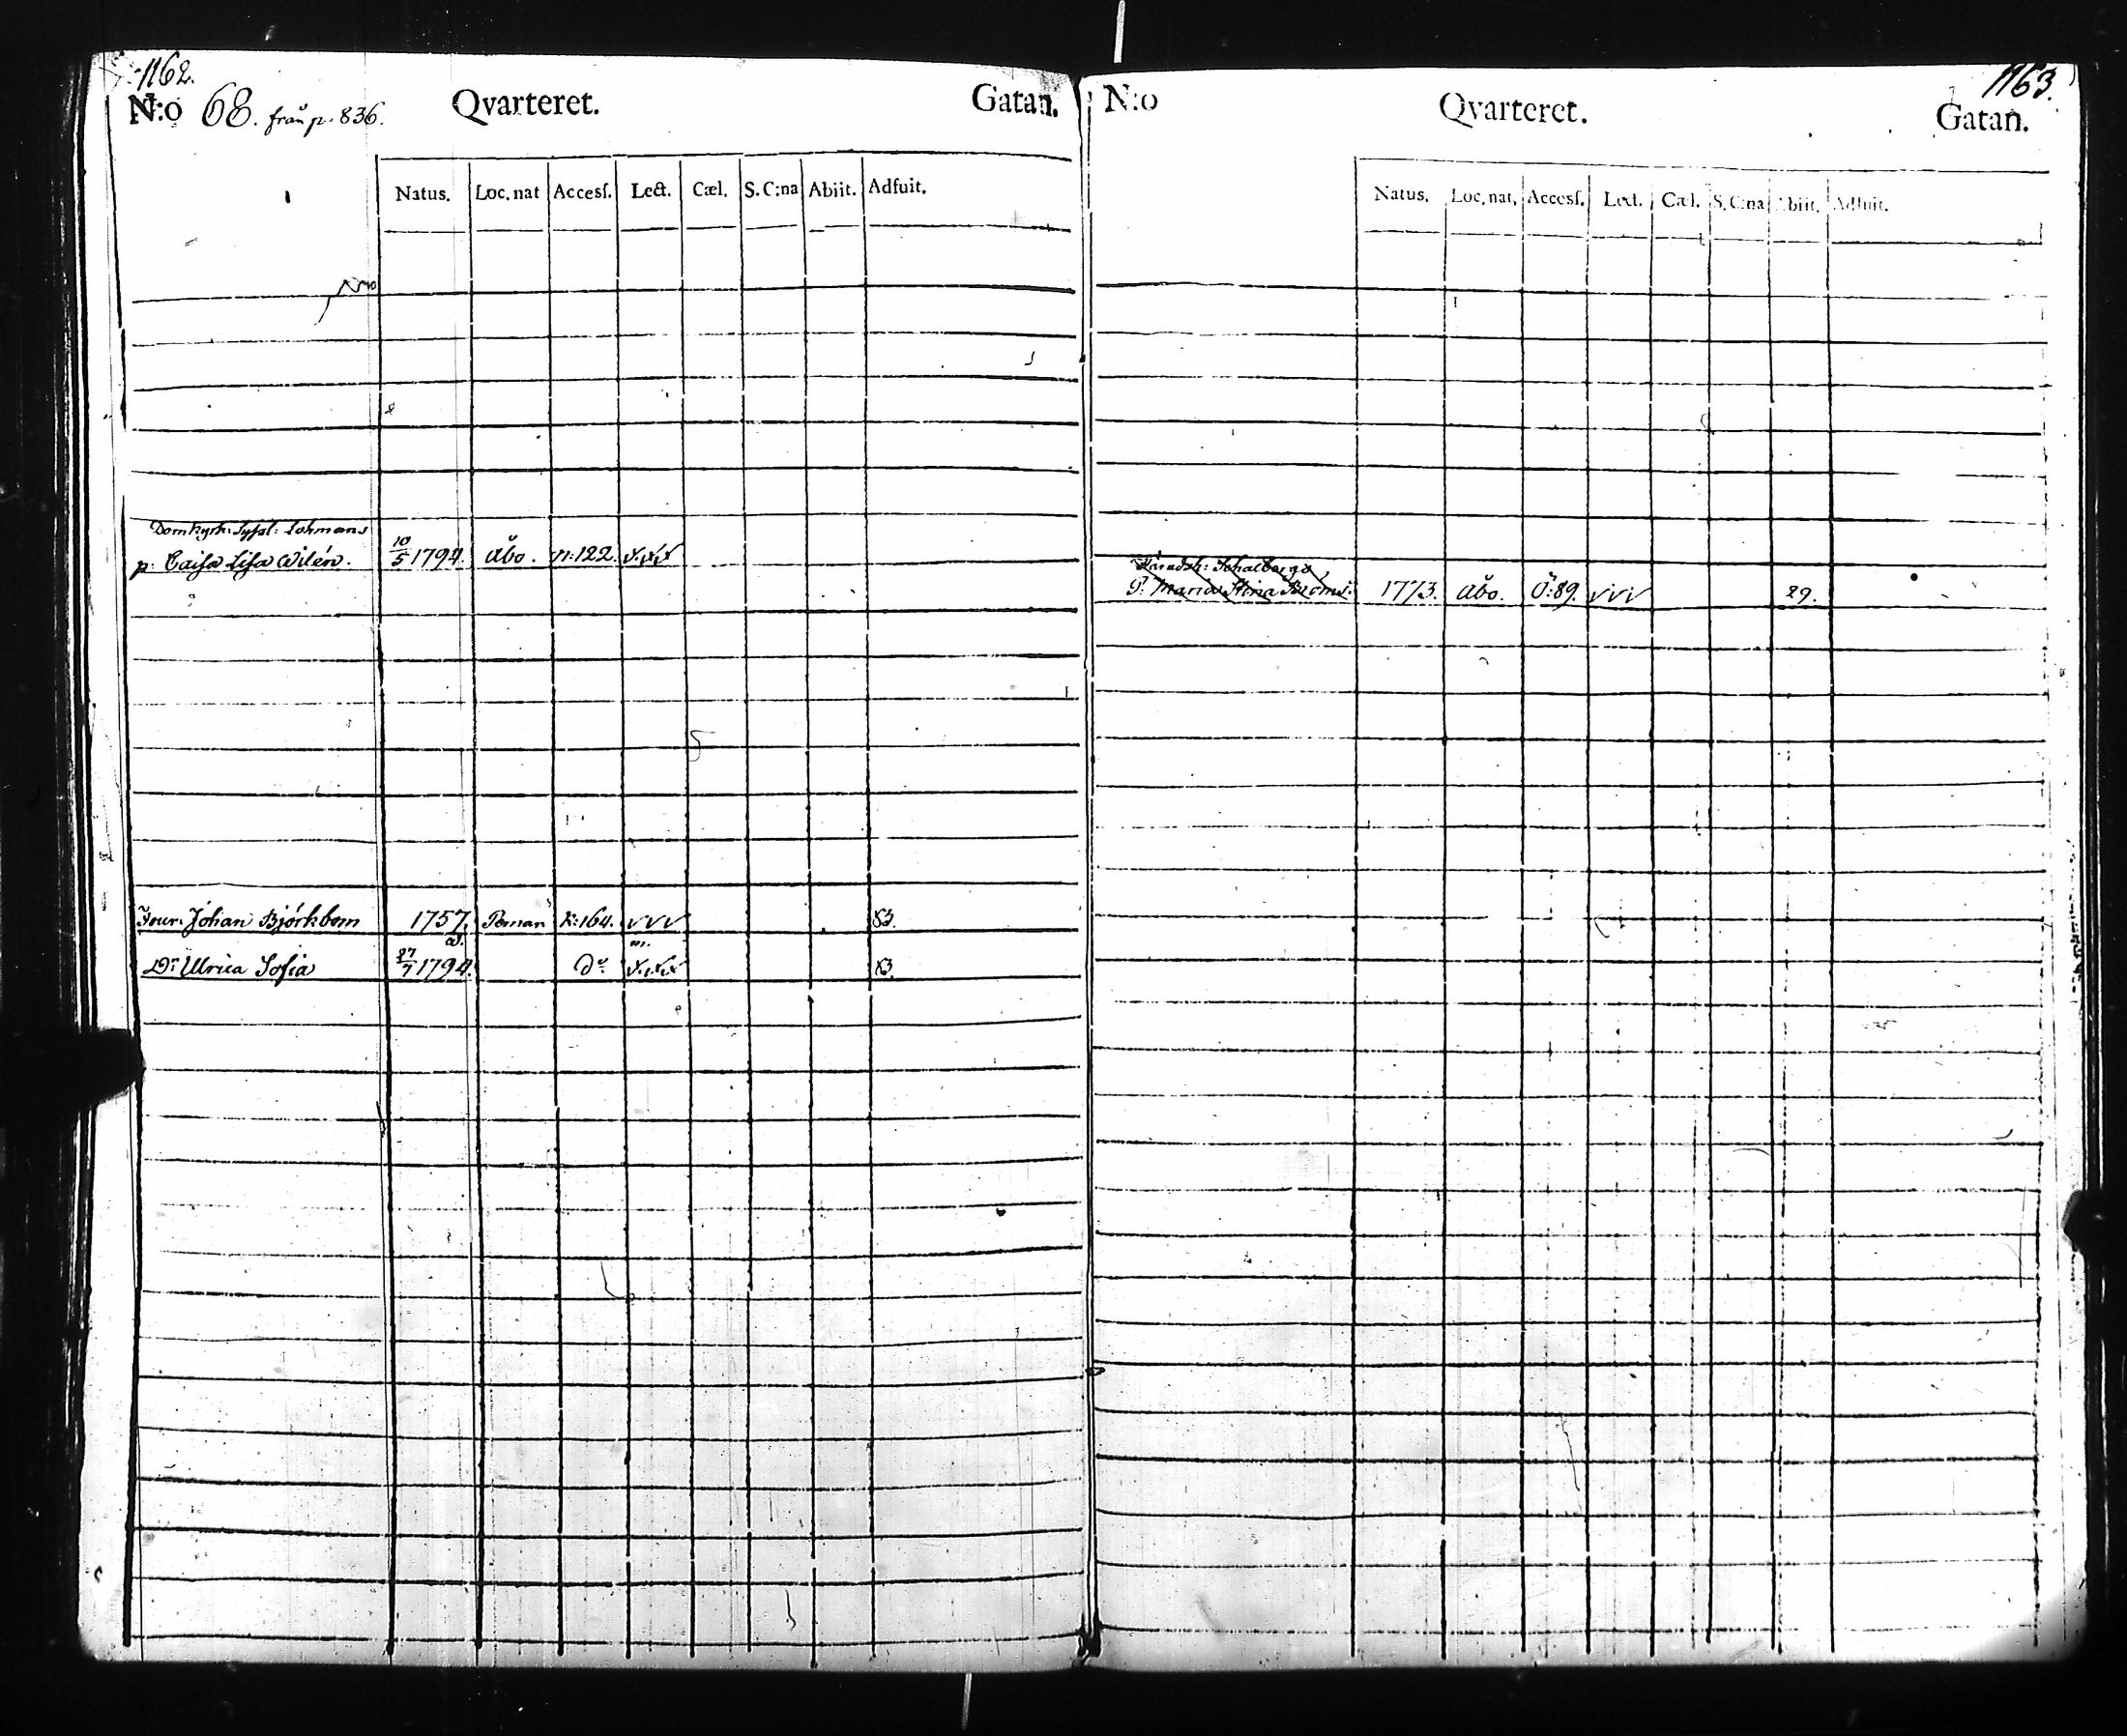 1162.
N:o 68. från p. 836. Qvarteret. Gatan.
Natus. Loc. nat Accesſ. Lect. Cæl. S. C:na Abiit. Adfuit.
Domkyrk: Sysl: Lohmans
p: Caisa Lisa Wilén. 10/5 1794. Åbo. n:122.
Johan Björkbom 1757. Pernan K:164. v v v 83.
Dr Ulrica Sofia 27/7 1794. do 83.
1163.
N:o Qvarteret. Gatan.
Natus. Loc. nat. Accesſ. Lect. Cæl. S. C:na Abiit. Adfuit.
P. Maria Stina 1773. Åbo. Ö:89. v v v 29.